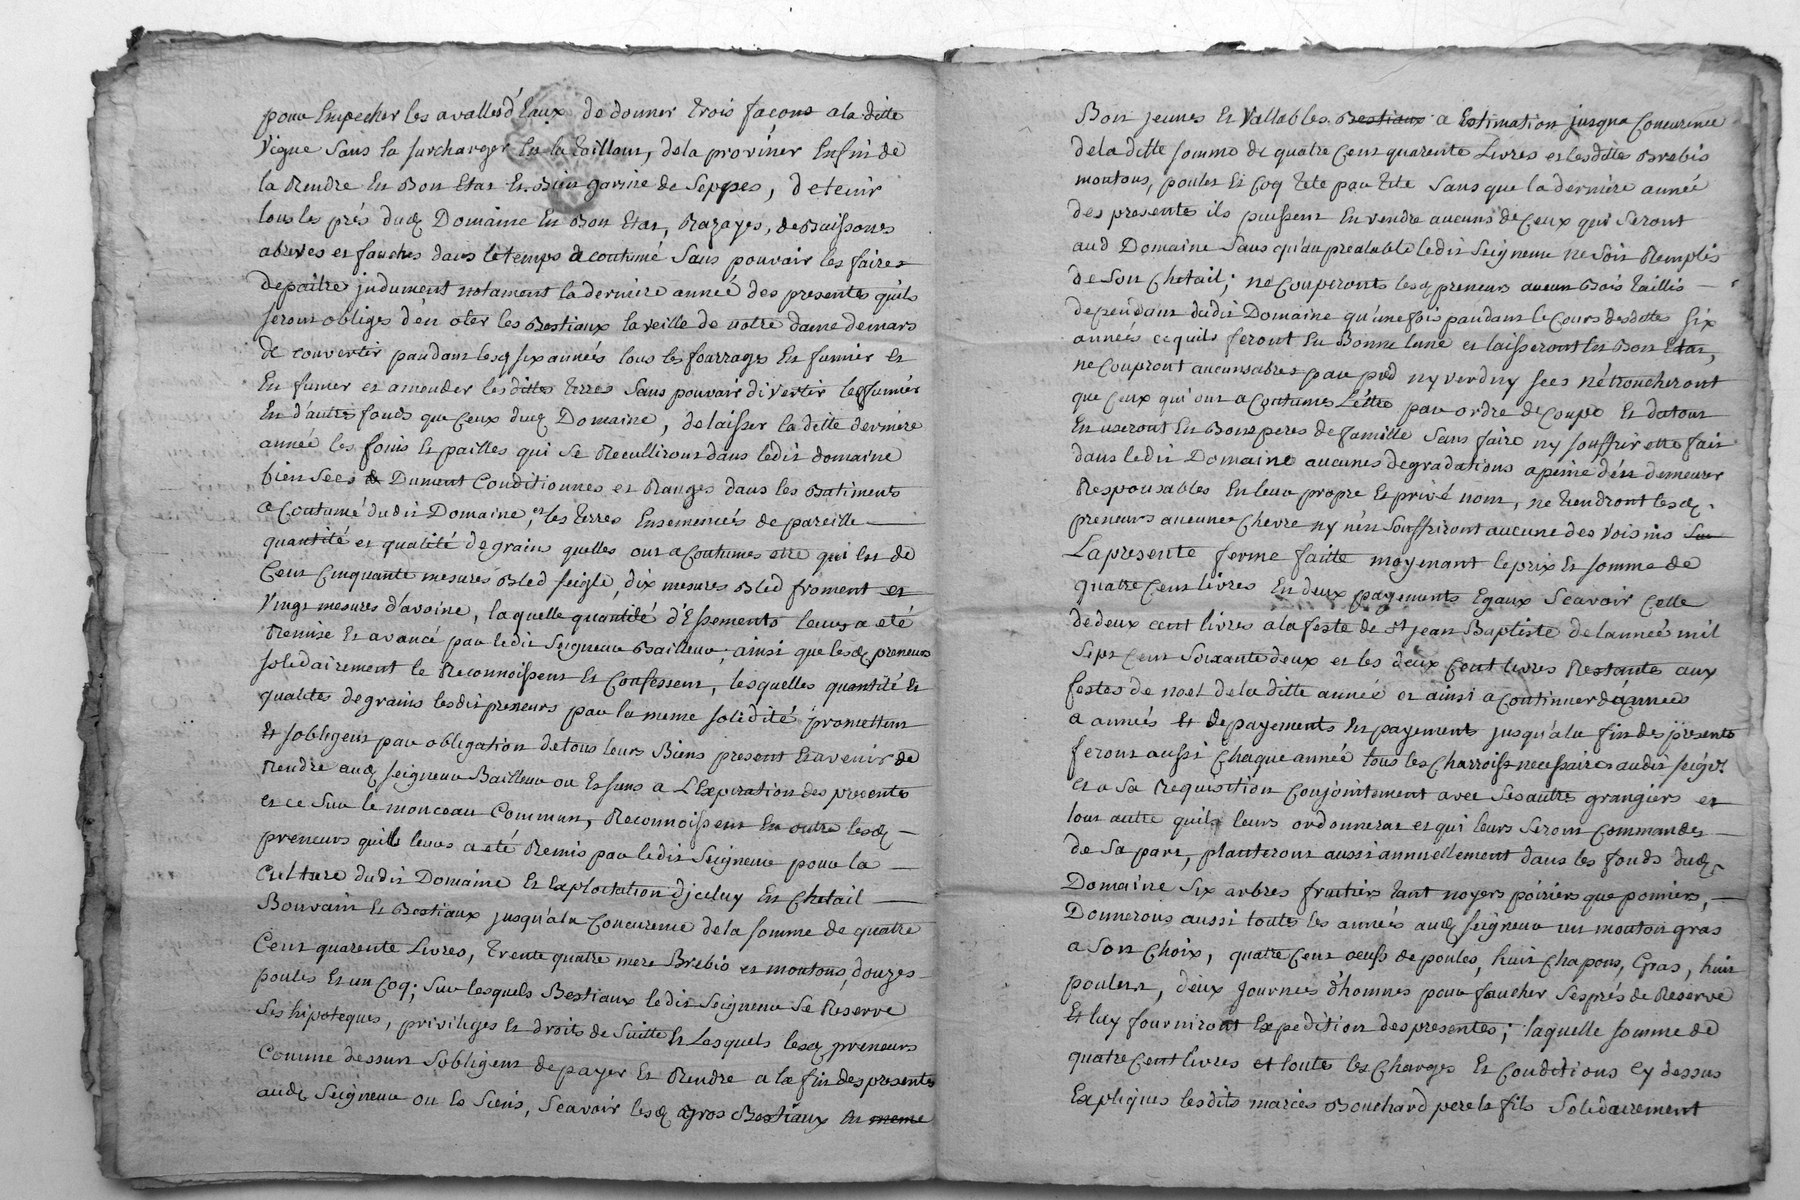 pour Empecher les avalles d'Eaux de donner trois façons a la ditte
Vigne sans la surcharger En la taillant, dela proviner Enfin de
la Rendre En Bon Etat Et Bien garnie de Seppes, de tenir
tous les prés dud Domaine En Bon Etat, Razayes, de Buissones
abeuves et fauches dans le temps acoutumé Sans pouvoir les faires
depaitre indument notament la derniere année des presentes quils
seront obliges d'en oter les Bestiaux la veille de notre dame de mars
de convertir pandant lesq six années tous les fourrages En fumier et
En fumer et amender les dittes terres Sans pouvoir divertir les fumier
En d'autres fonds que Ceux dud Domaine, de laisser la ditte derniere
année les foins Et pailles qui Se Recullirons dans ledit domaine
bien Secs & Dument Conditionnes et Ranges dans les Batiments
acoutumé dudit Domaine, et les terres Ensemencés de pareille
quantité et qualité de grains quelles ont acoutumes etre qui Est de
Cent Cinquante mesures Bled seigle, dix mesures Bled froment et
Vingt mesures d'avoine, laquelle quantité d'Essements leurs a eté
Remise Et avancé par ledit Seigneur Bailleur, ainsi que lesd preneurs
solidairement le Reconnoissent Et Confessent, lesquelles quantité Et
qualités de grains lesdit preneurs par la meme solidité promettent
Et sobligent par obligation de tous leurs Biens present Et avenir de
Rendre aud seigneur Bailleur ou Es siens a L'Expiration des presentes
et ce Sur le monceau Commun, Reconnoissent En outre lesd
preneurs quils leurs a eté Remis par ledit Seigneur pour la
Culture dudit Domaine Et Exploitation djceluy En Chetail
Bouvain Et Bestiaux jusqu'ala Concurence de la somme de quatre
Cent quarente Livres, trente quatre mere Brebis et moutons, douzes
poules Et un Coq; Sur lesquels Bestiaux ledit Seigneur Se Reserve
Ses hipoteques, privileges Et droits de Suitte Et Lesquels lesd preneurs
Comme dessus Sobligent de payer Et Rendre a la fin des presentes
aud Seigneur ou Es Siens, Scavoir lesd gros Bestiaux En meme
Bon jeunes Et Vallables Bestiaux a Estimation jusqua Concurence
de la ditte somme de quatre Cent quarente Livres et lesdittes Brebis
moutons, poules Et Coq tete par tete Sans que la derniere année
des presentes ils puissent En vendre aucuns de Ceux qui Seront
aud Domaine Sans qu'au prealable ledit Seigneur ne Soit Remplis
de Son Chetail; ne Couperont lesd preneurs aucun Bois taillis
dependant dudit Domaine qu'une fois pandant le Cours desdittes Six
années ce quils feront En Bonne lune et laisseront En Bon Etat,
ne Couperont aucuns arbres par pied ny verd ny Secs n'étroncheront
que Ceux qui ont acoutumes L'être par ordre de Coupe Et du tout
En useront En Bons peres de famille Sans faire ny souffrir etre fait
dans ledit Domaine aucunes degradations apeine d'en demeurer
Responsables En leur propre Et privé nom, ne tiendront lesd
preneurs aucunes Chevre ny n'en souffriront aucune des Voisins
La presente ferme faitte moyenant le prix Et somme de
quatre Cent livres En deux payements Egaux Scavoir Celle
de deux cent livres a la feste de St jean Baptiste de lannée mil
Sept Cent Soixante deux et les deux Cent livres Restante aux
festes de noel de la ditte année et ainsi a Continuer d'années
a années Et de payements En payement jusqu'ala fin des presente
feront aussi Chaque année tous les Charrois necessaires audit seigr
et a Sa Requisition Conjointement avec Ses autres grangiers et
tout autre quils leurs ordonnerat et qui leurs Seront Commandes
de Sa part, planteront aussi annuellement dans les fonds dud
Domaine Six arbres fruitiers tant noyers poiriers que pomiers,
Donnerons aussi toutes les années aud seigneur un mouton gras
a Son Choix, quatre Cent oeufs de poules, huit Chapons, Gras, huit
poulets, deux journées d'hommes pour faucher Ses prés de Reserve
Et luy fourniront Expedition des presentes; laquelle somme de
quatre Cent livres et toutes les Charges Et Conditions Cy dessus
Expliquées lesdits mariés Bouchard pere le fils Solidairement